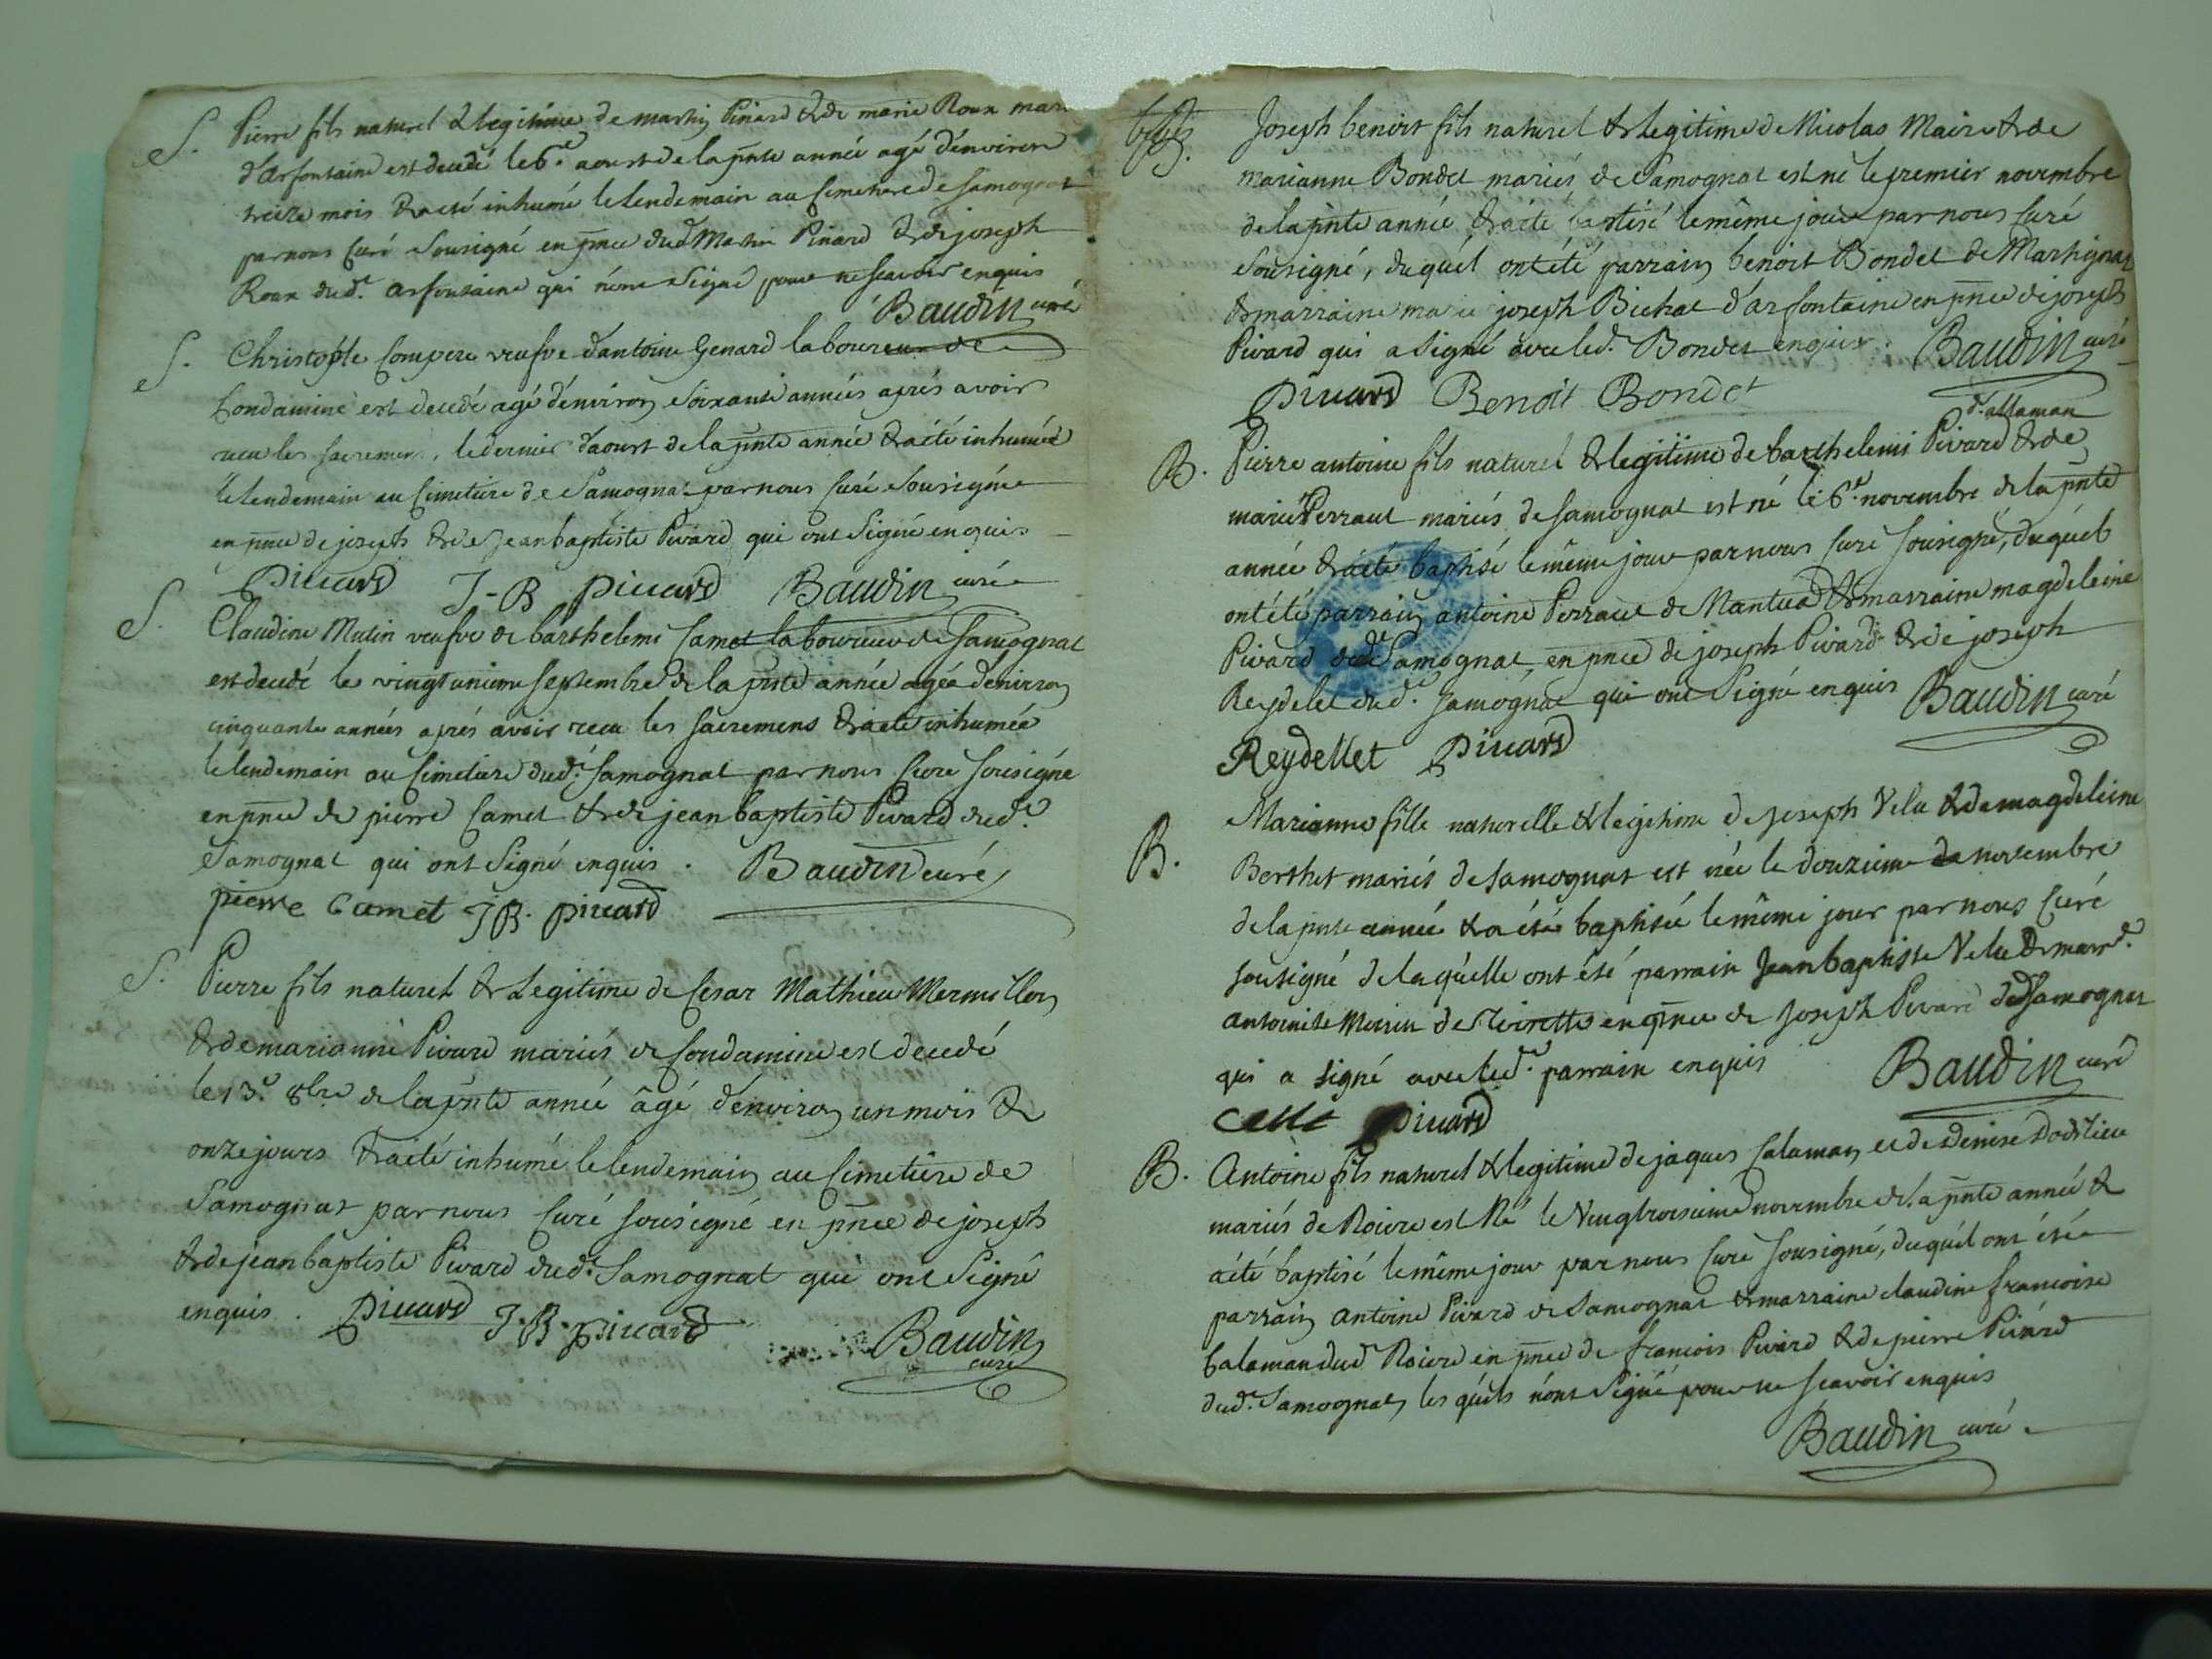 S. Pierre fils naturel & legitime de martin Pinard & de marie Roux mar
d'arfontaine est decedé le 6.e aoust de la pnte année agé d'environ
treize mois & a eté inhumé le lendemain au Cimetiere de Samognat
par nous Curé Sousigné en pnce dud Martin Pinard & de joseph
Roux dud.t arfontaine qui n'ont Signé pour ne scavoir enquis
Baudin curé
S. Christophle Compere veufve d'antoine Genard laboureur de
Condamine est decedé agé d'environ Soixante années aprés avoir
recu les sacremens, le dernier d'aoust de la pnte année & a eté inhumée
le lendemain au Cimetiere de Samognat par nous Curé Sousigné
en pnce de joseph & de Jean baptiste Pivard qui ont Signé enquis
Pivard J-B pivard Baudin curé
S. Claudine Mutin veufve de barthelemi Camet laboureur de Samognat
est decedé le vingtunieme Septembre de la pnte année agée d'environ
cinquante années aprés avoir recu les sacremens & a eté inhumée
le lendemain au Cimetiere dud.t Samognat par nous Curé Sousigné
en pnce de pierre Camet & de jean baptiste Pivard dud.t
Samognat qui ont Signé enquis. Baudin curé
pierre Camet JB. pivard
S. Pierre fils naturel & Legitime de César Mathieu Mermillon
& de marianne Pivard mariés de Condamine est decedé
le 13.e 8bre de la pnte année âgé d'environ un mois &
onze jours & a eté inhumé le lendemain au Cimetiere de
Samognat par nous Curé sousigné en pnce de joseph
& de jean baptiste Pivard dud.t Samognat qui ont Signé
enquis. Pivard J.B. pivard
Baudin
curé
B. Joseph benoit fils naturel & legitime de Nicolas Maire & de
marianne Bondet mariés de Samognat est né le premier novembre
de la pnte année & a eté baptisé le même jour par nous Curé
Sousigné, duquél ont été parrain benoit Bondet de Martignat
& marraine marie joseph Bichat d'arfontaine en pnce de joseph
Pivard qui a Signé avec led.t Bondet enquis. Baudin curé
Pivard Benoit Bondet
d.t allaman
B. Pierre antoine fils naturel & legitime de barthelemi Pivard & de
marie Perraut mariés de Samognat est né le 6.e novembre de la pnte
année & a eté baptisé le même jour par nous Curé Sousigné, duquél
ont été parrain antoine Perraut de Nantua & marraine magdeleine
Pivard de Samognat en pnce de joseph Pivard & de joseph
Reydelet dud.t Samognat qui ont Signé enquis Baudin curé
Reydellet Pivard
B. Marianne fille naturelle & legitime de Joseph Velu & de magdeleine
Berthet mariés de Samognat est née le douzieme de novembre
de la pnte année & a été baptisée le même jour par nous Curé
sousigné de laquelle ont été parrain Jean baptiste Velu & marr.e
antoinete en pnce de Joseph Pivard de Samognat
qui a signé avec led.t parrain enquis Baudin curé
Pivard
B. Antoine fils naturel & legitime de jaques Calaman et de Denise
mariés de Roiere est Né le Vingtroisieme novembre de la pnte année &
a eté baptisé le même jour par nous Curé Sousigné, duquél ont été
parrain Antoine Pivard de Samognat & marraine claudine francoise
Calaman dud. Roiere en pnce de francois Pivard & de pierre Pivard
dud. Samognat, les quéls n'ont Signé pour ne scavoir enquis
Baudin curé.